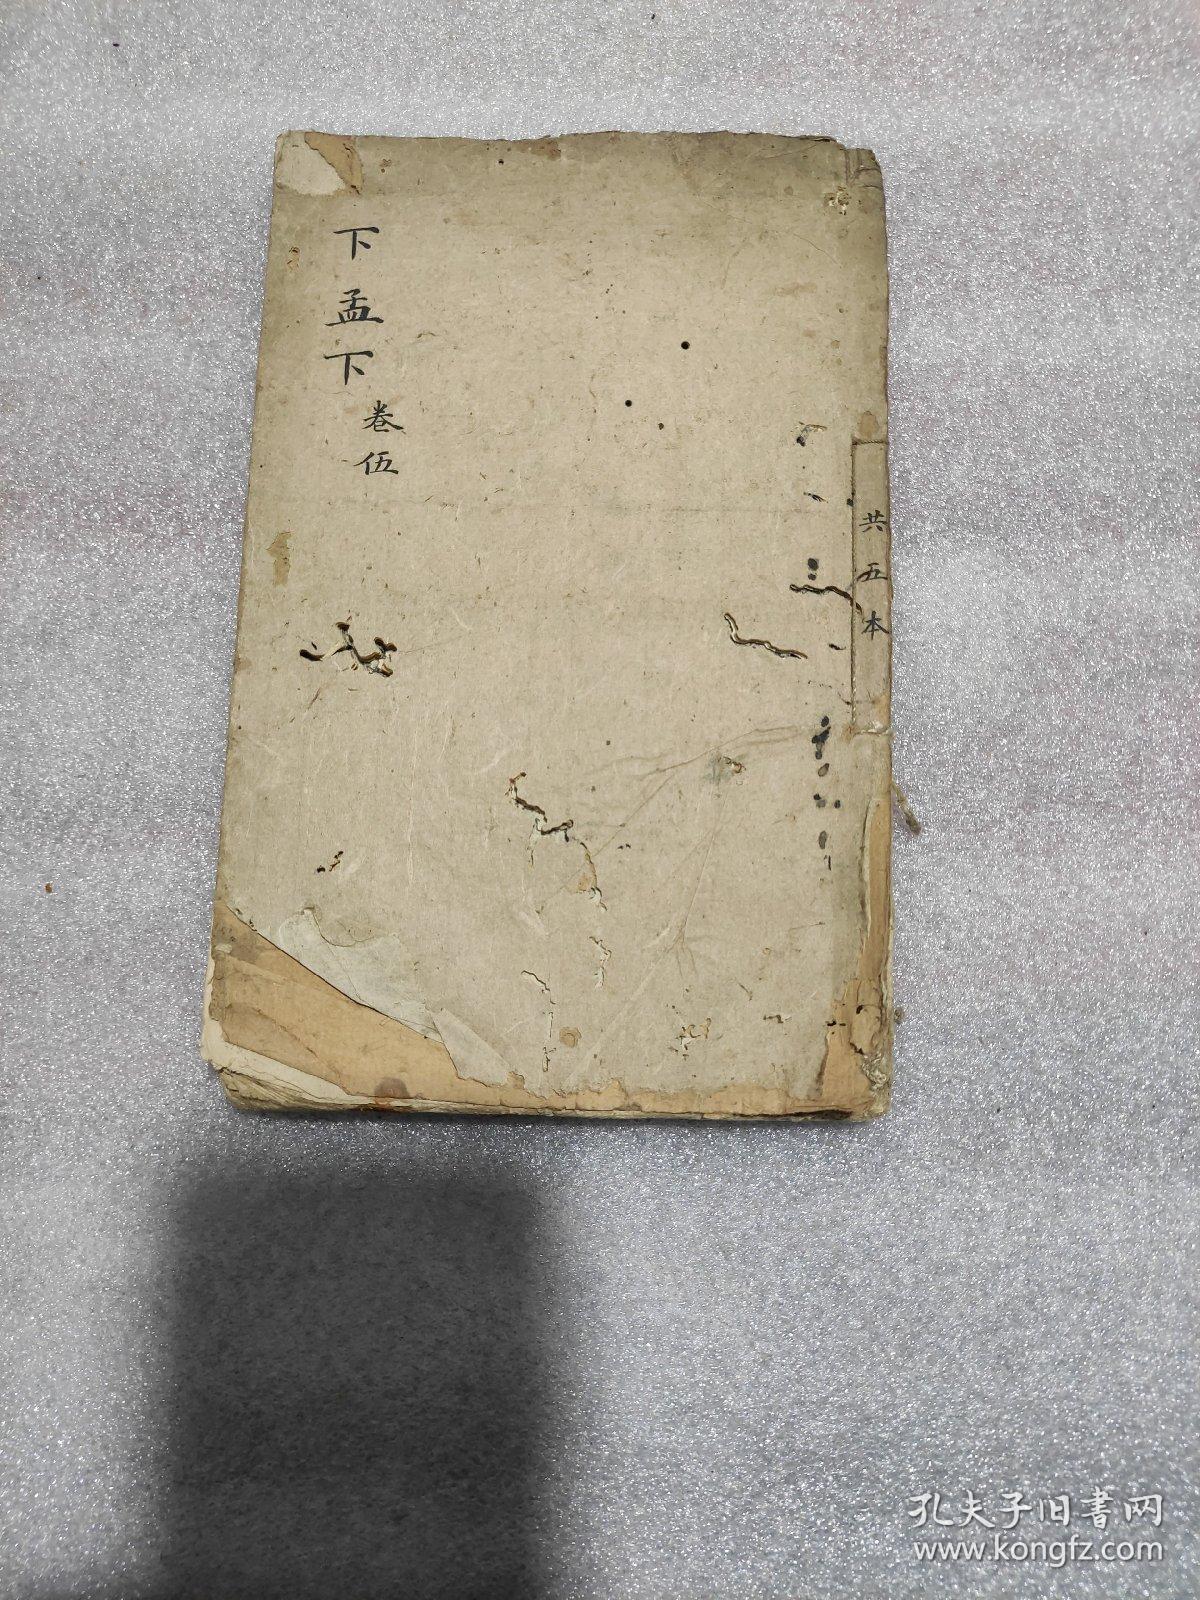 下孟下
卷伍
共五本
孔夫子旧书网
www.kongfz.com